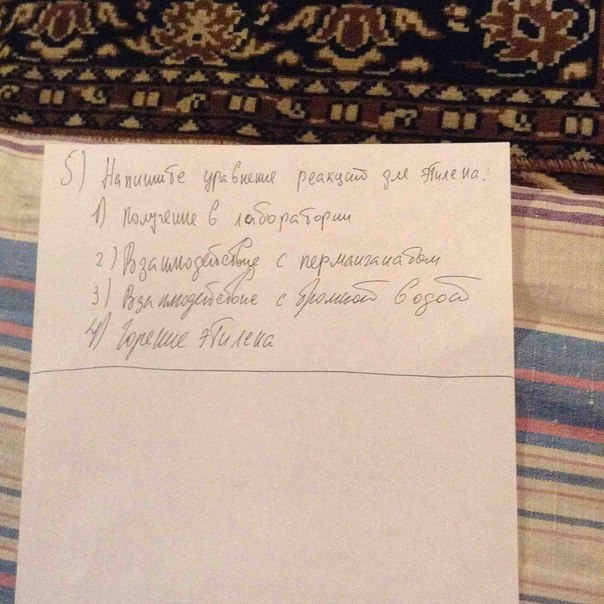 5) Напишите уравнение реакций для этилена:
1) Получение в лаборатории
2) Взаимодействие с перманганатом
3) Взаимодействие с бромной водой
4) Горение этилена